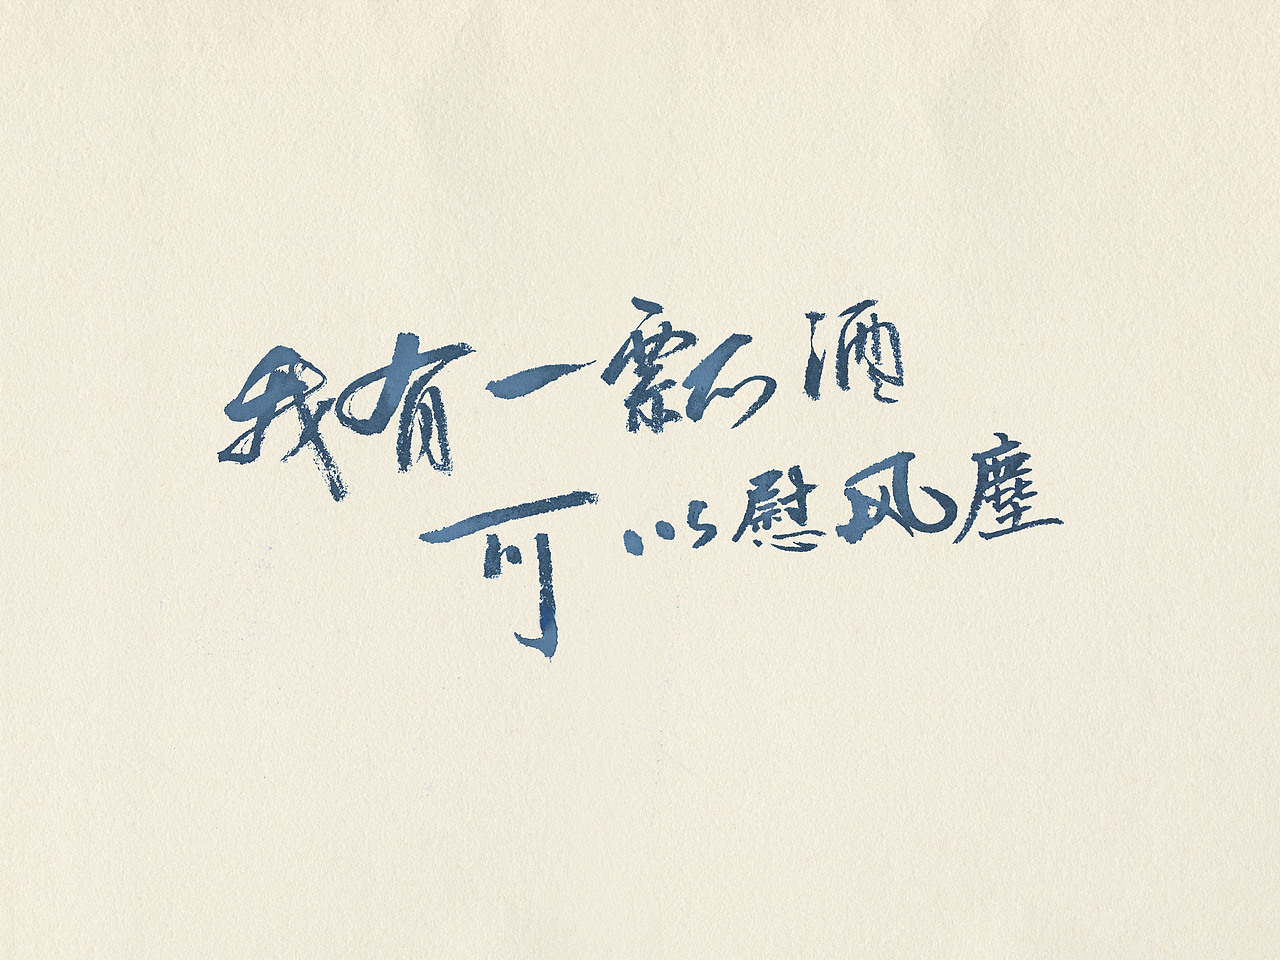 我有一瓢酒
可以慰风塵